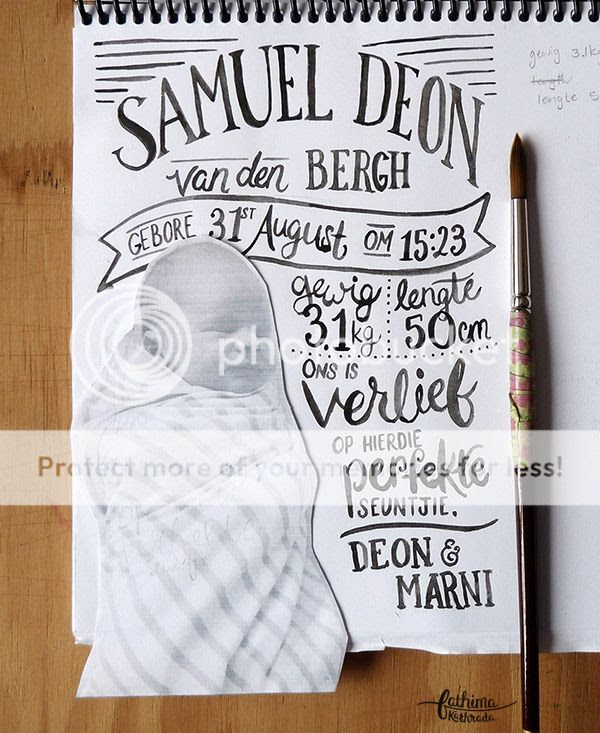 SAMUEL DEON
van den BERGH
GEBORE 31ST August OM 15:23
gewig 3.1kg
lengte 50cm
ONS IS
verlief
OP HIERDIE
perfekte
SEUNTJIE.
DEON &
MARNI
gewig 3.1kg
length
lengte 5
photobucket
Protect more of your memories for less!
fathima
Kathrada